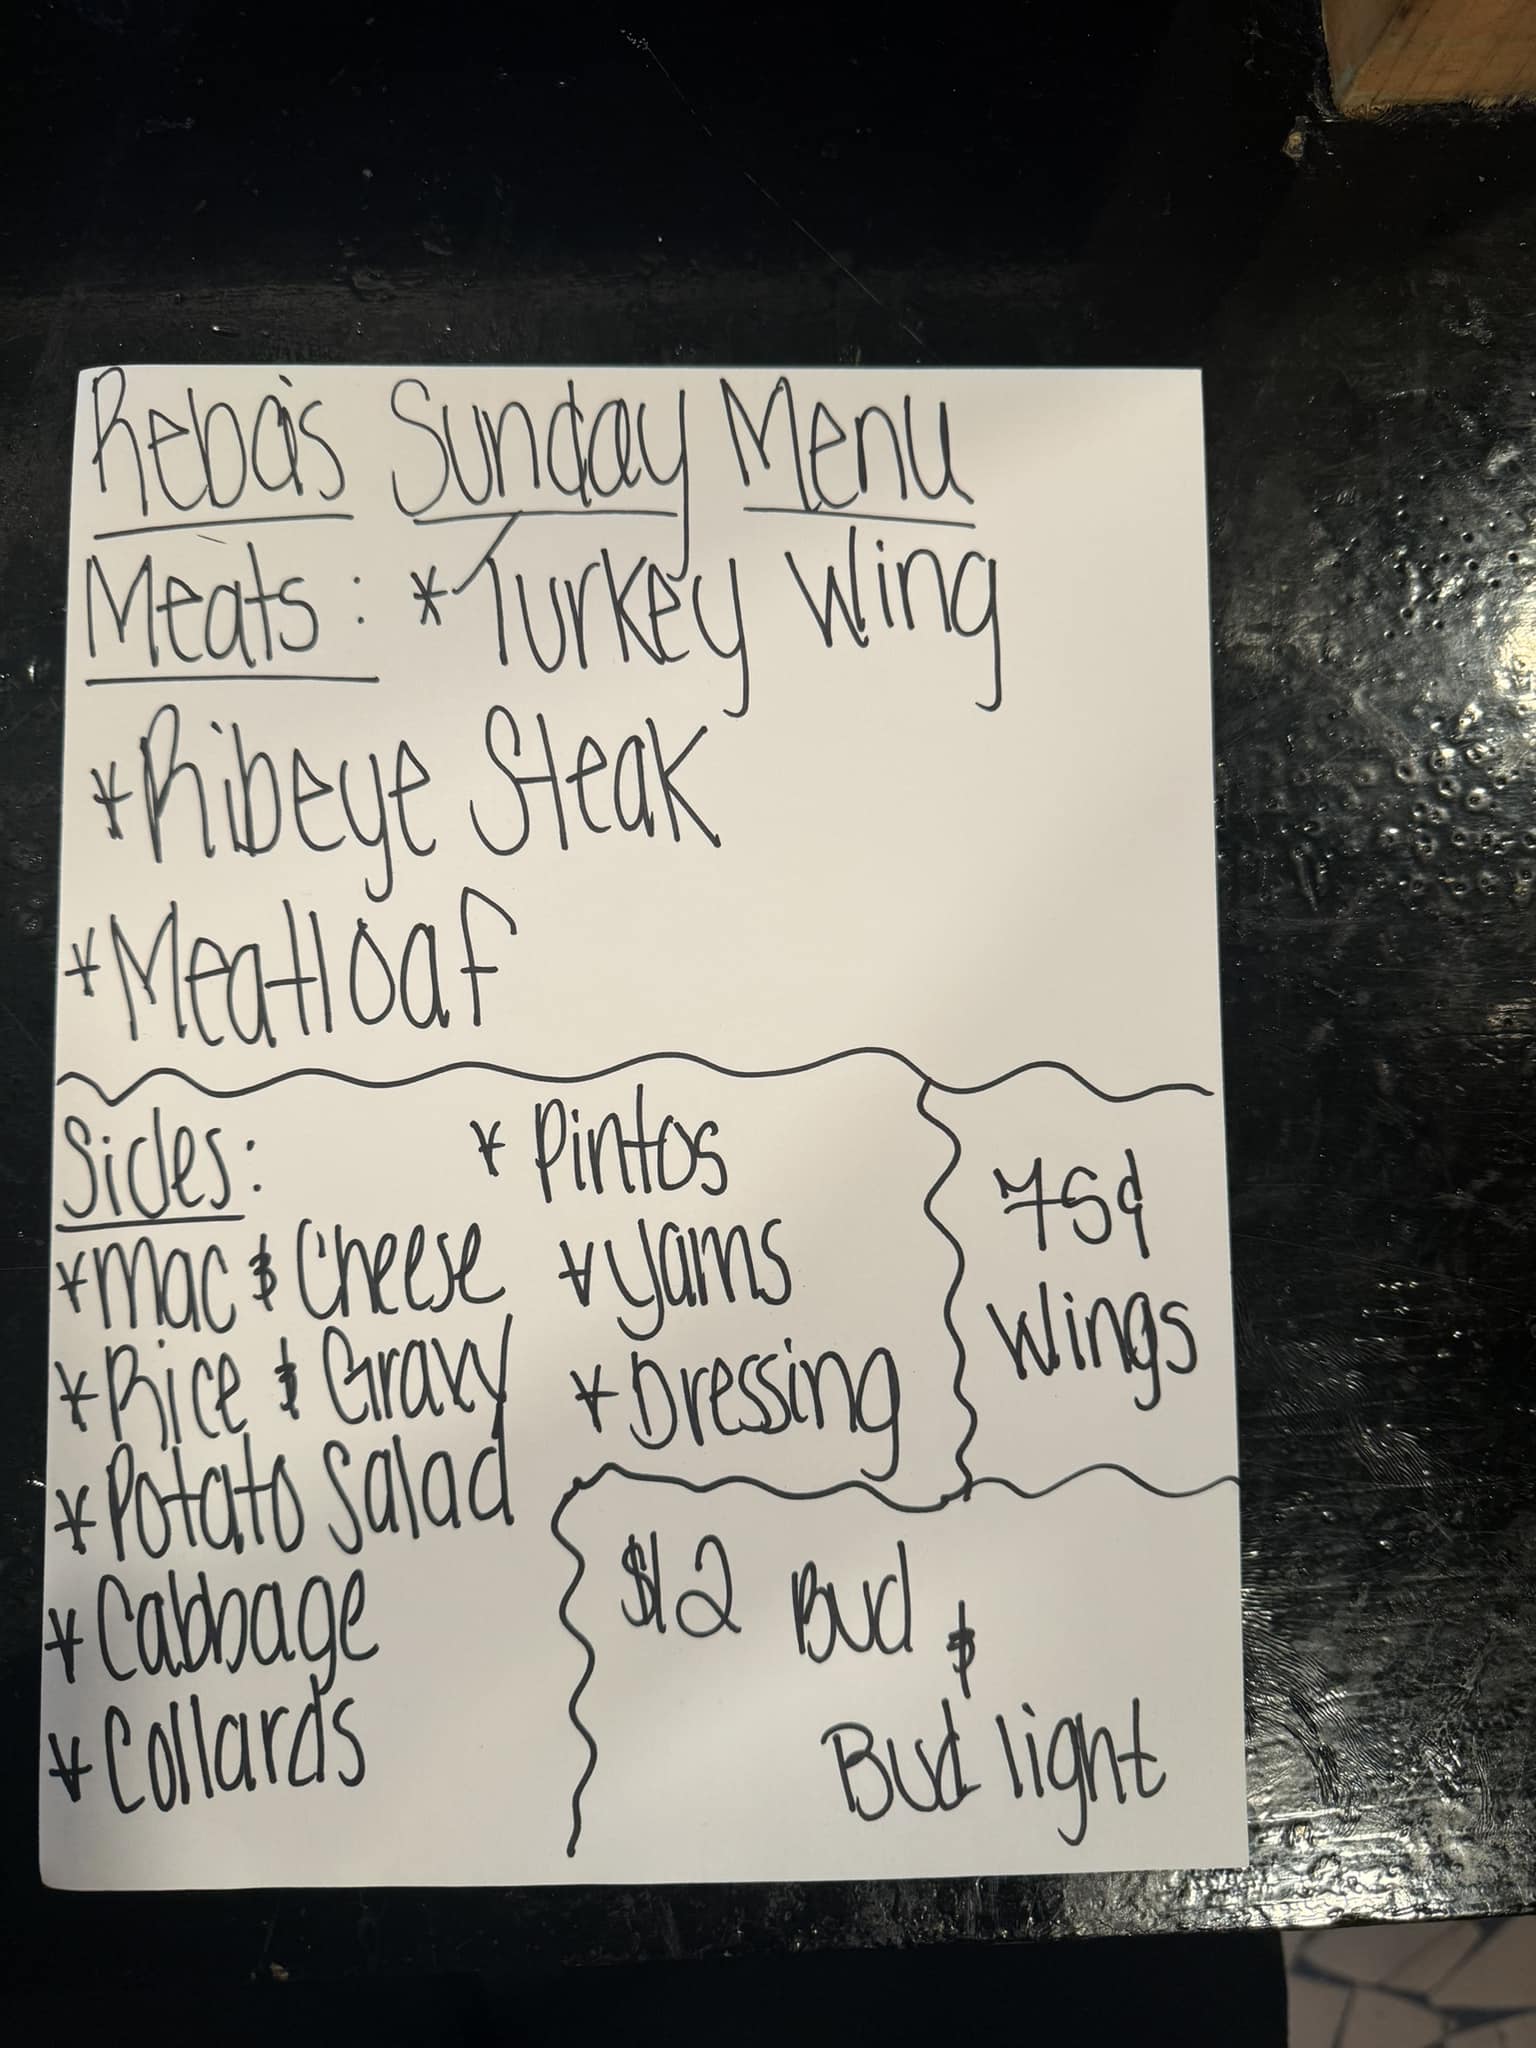 Reba's Sunday Menu
Meats: *Turkey Wing
*Ribeye Steak
*Meatloaf
Sides:
*Mac & Cheese
*Rice & Gravy
*Potato Salad
*Cabbage
*Collards
* Pintos
*Yams
*Dressing
75¢
Wings
$12 Bud &
Bud light